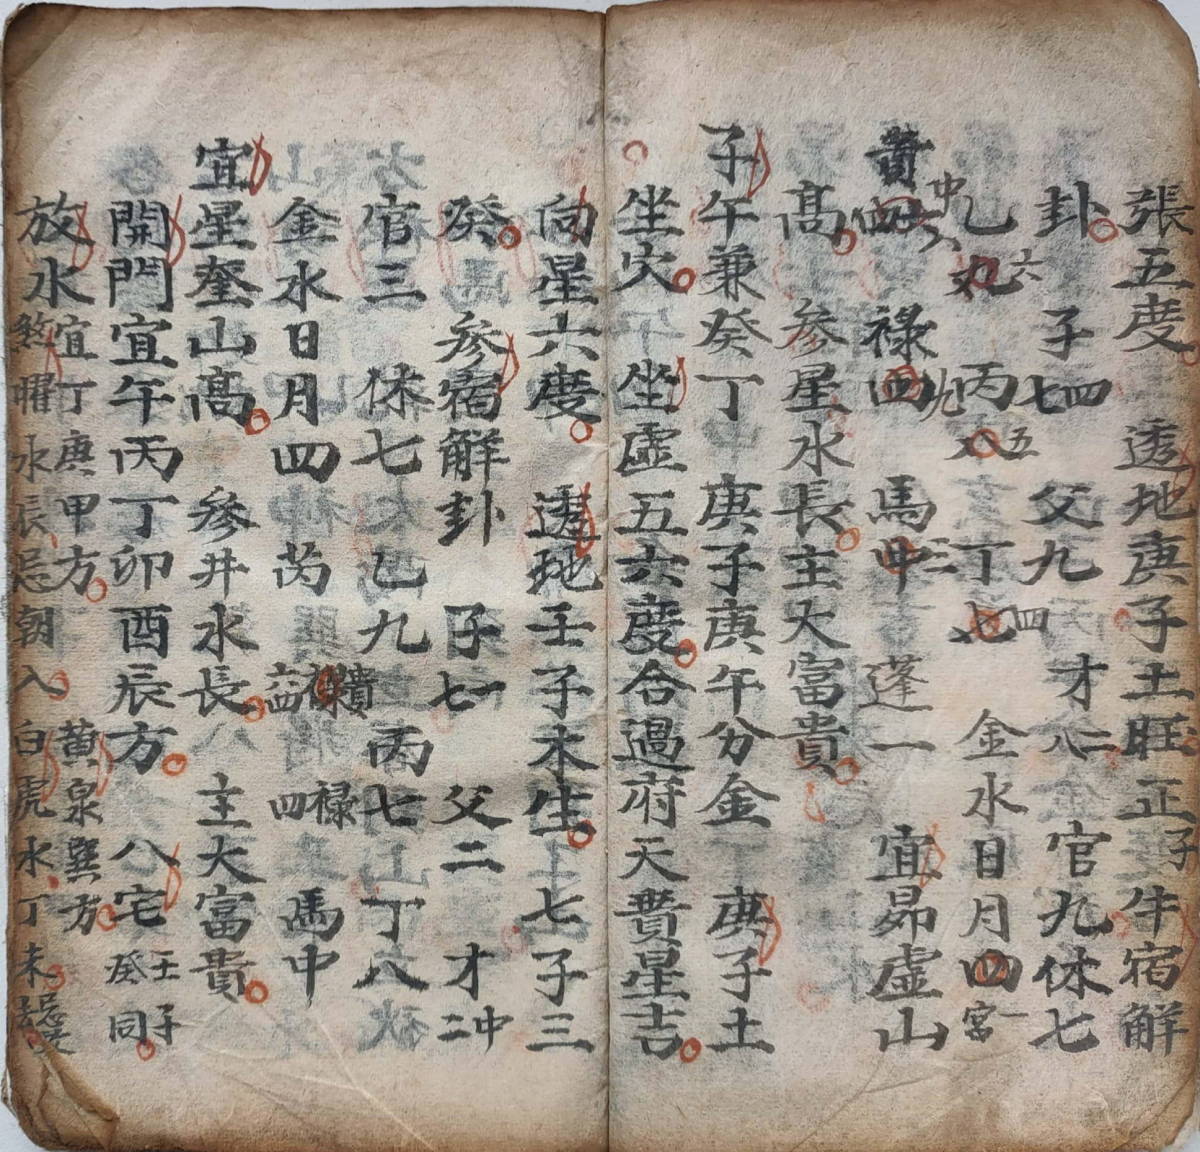 張五度。透地庚子土旺正子牛宿解
卦。子七四父九才八二官九休七
乙六丙五丁四金水日月四一宮
貴中六祿四九馬中三蓬一宜昴虛山
高。參星水長。主大富貴。
子午兼癸丁庚子庚午分金庚子土
坐穴。坐虛五六度。合過府天貴星吉。
向星六度。透地壬子木生。七子三
癸。參宿解卦子七一父二才二中
官三休七乙九丙七丁八
金水日月四芮貴祿六四祿四馬中
宜星奎山高。參井水長。主大富貴。
開門宜午丙丁卯酉辰方。八宅壬子癸同。
放水宜丁庚甲方。黃泉巽方
煞曜水辰忌朝入。白虎水丁未